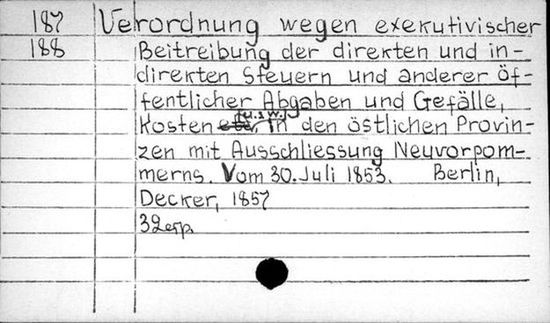 187 Verordnung wegen exekutivischer
188 Beitreibung der direkten und in-
direkten Steuern und anderer öf-
fentlicher Abgaben und Gefälle,
Kosten etc. (u.s.w.) in den östlichen Provin-
zen mit Ausschliessung Neuvorpom-
merns. Vom 30. Juli 1853. Berlin,
Decker, 1857